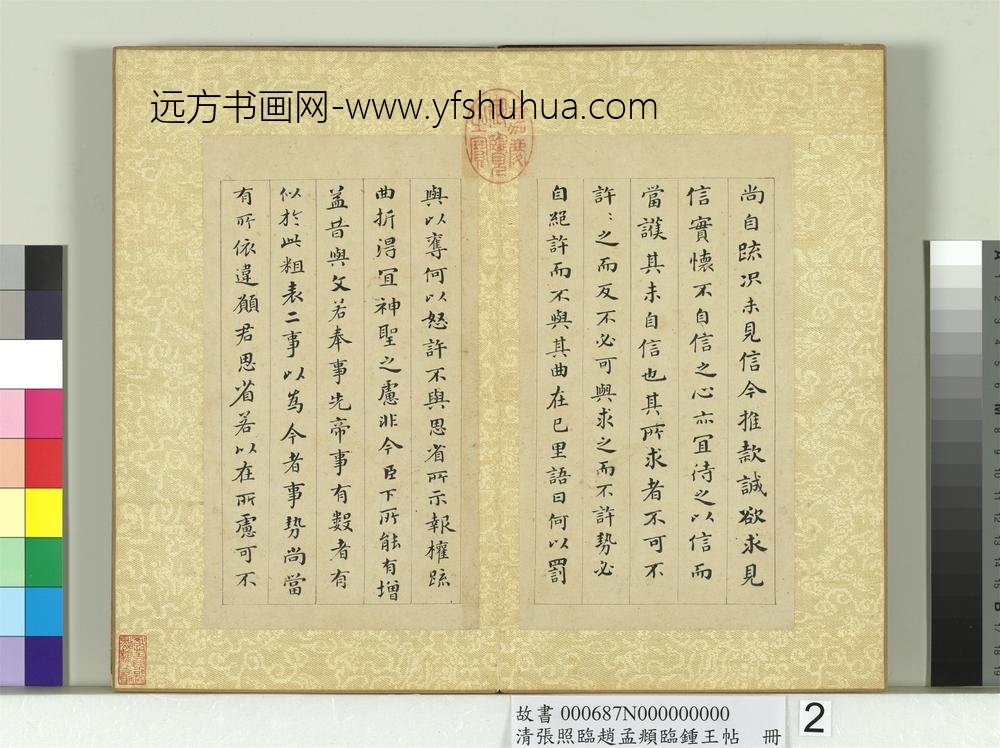 远方书画网-www.yfshuhua.com
尚自疏况未見信今推款誠欲求見
信實懷不自信之心亦冝待之以信而
當護其未自信也其所求者不可不
許:之而反不必可與求之而不許勢必
自絕許而不與其曲在已里語曰何以罰
與以奪何以怒許不與思省所示報權疏
曲折淂冝神聖之慮非今臣下所能有增
益昔與文若奉事先帝事有數者有
似於此粗表二事以為今者事勢尚當
有所依違願君思省若以在所慮可不
故書 000687N000000000
清張照臨趙孟頫臨鍾王帖 冊
2